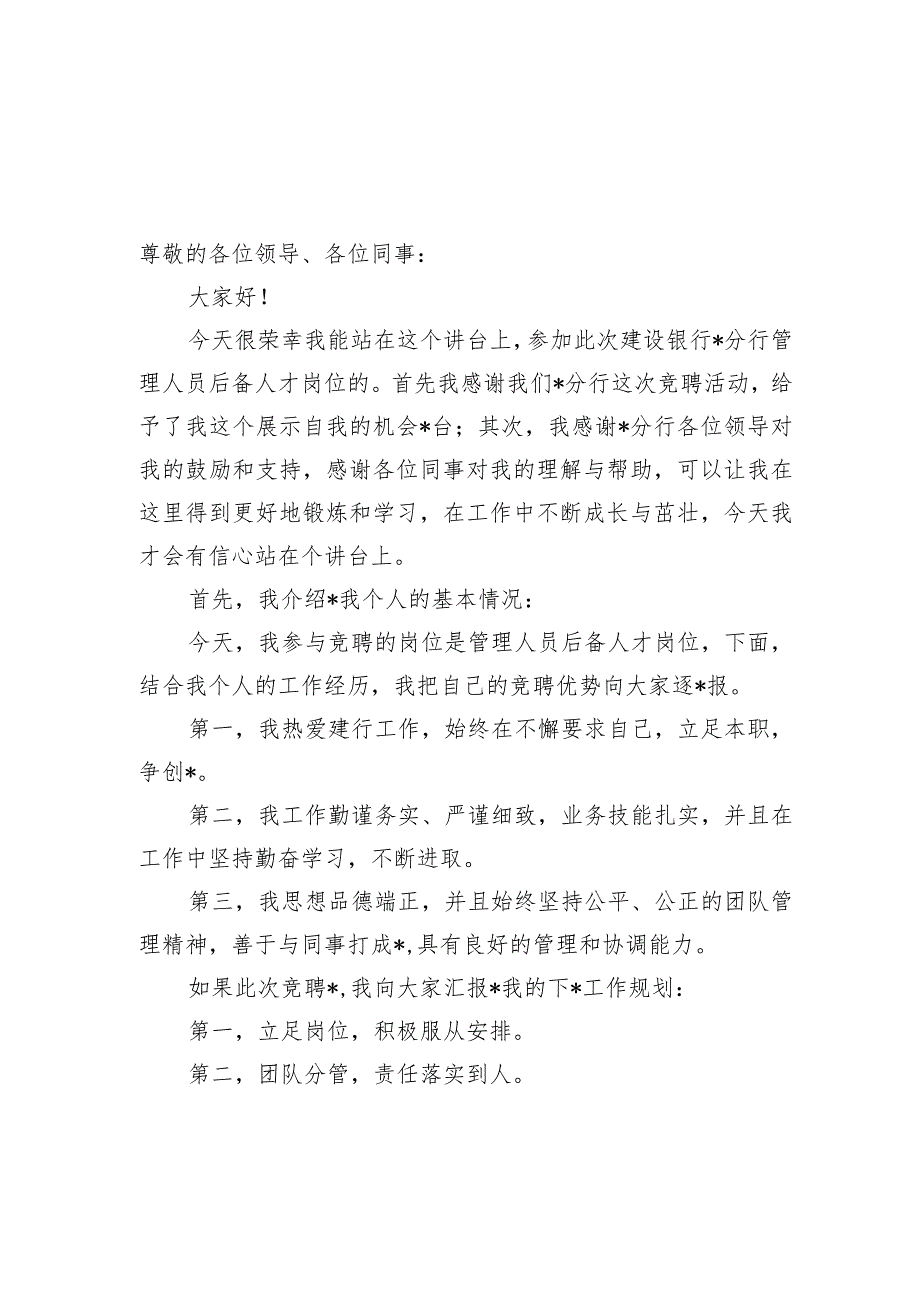 尊敬的各位领导、各位同事：
大家好！
今天很荣幸我能站在这个讲台上，参加此次建设银行*分行管
理人员后备人才岗位的。首先我感谢我们*分行这次竞聘活动，给
予了我这个展示自我的机会*台；其次，我感谢*分行各位领导对
我的鼓励和支持，感谢各位同事对我的理解与帮助，可以让我在
这里得到更好地锻炼和学习，在工作中不断成长与茁壮，今天我
才会有信心站在个讲台上。
首先，我介绍*我个人的基本情况：
今天，我参与竞聘的岗位是管理人员后备人才岗位，下面，
结合我个人的工作经历，我把自己的竞聘优势向大家逐*报。
第一，我热爱建行工作，始终在不懈要求自己，立足本职，
争创*。
第二，我工作勤谨务实、严谨细致，业务技能扎实，并且在
工作中坚持勤奋学习，不断进取。
第三，我思想品德端正，并且始终坚持公平、公正的团队管
理精神，善于与同事打成*,具有良好的管理和协调能力。
如果此次竞聘*,我向大家汇报*我的下*工作规划：
第一，立足岗位，积极服从安排。
第二，团队分管，责任落实到人。